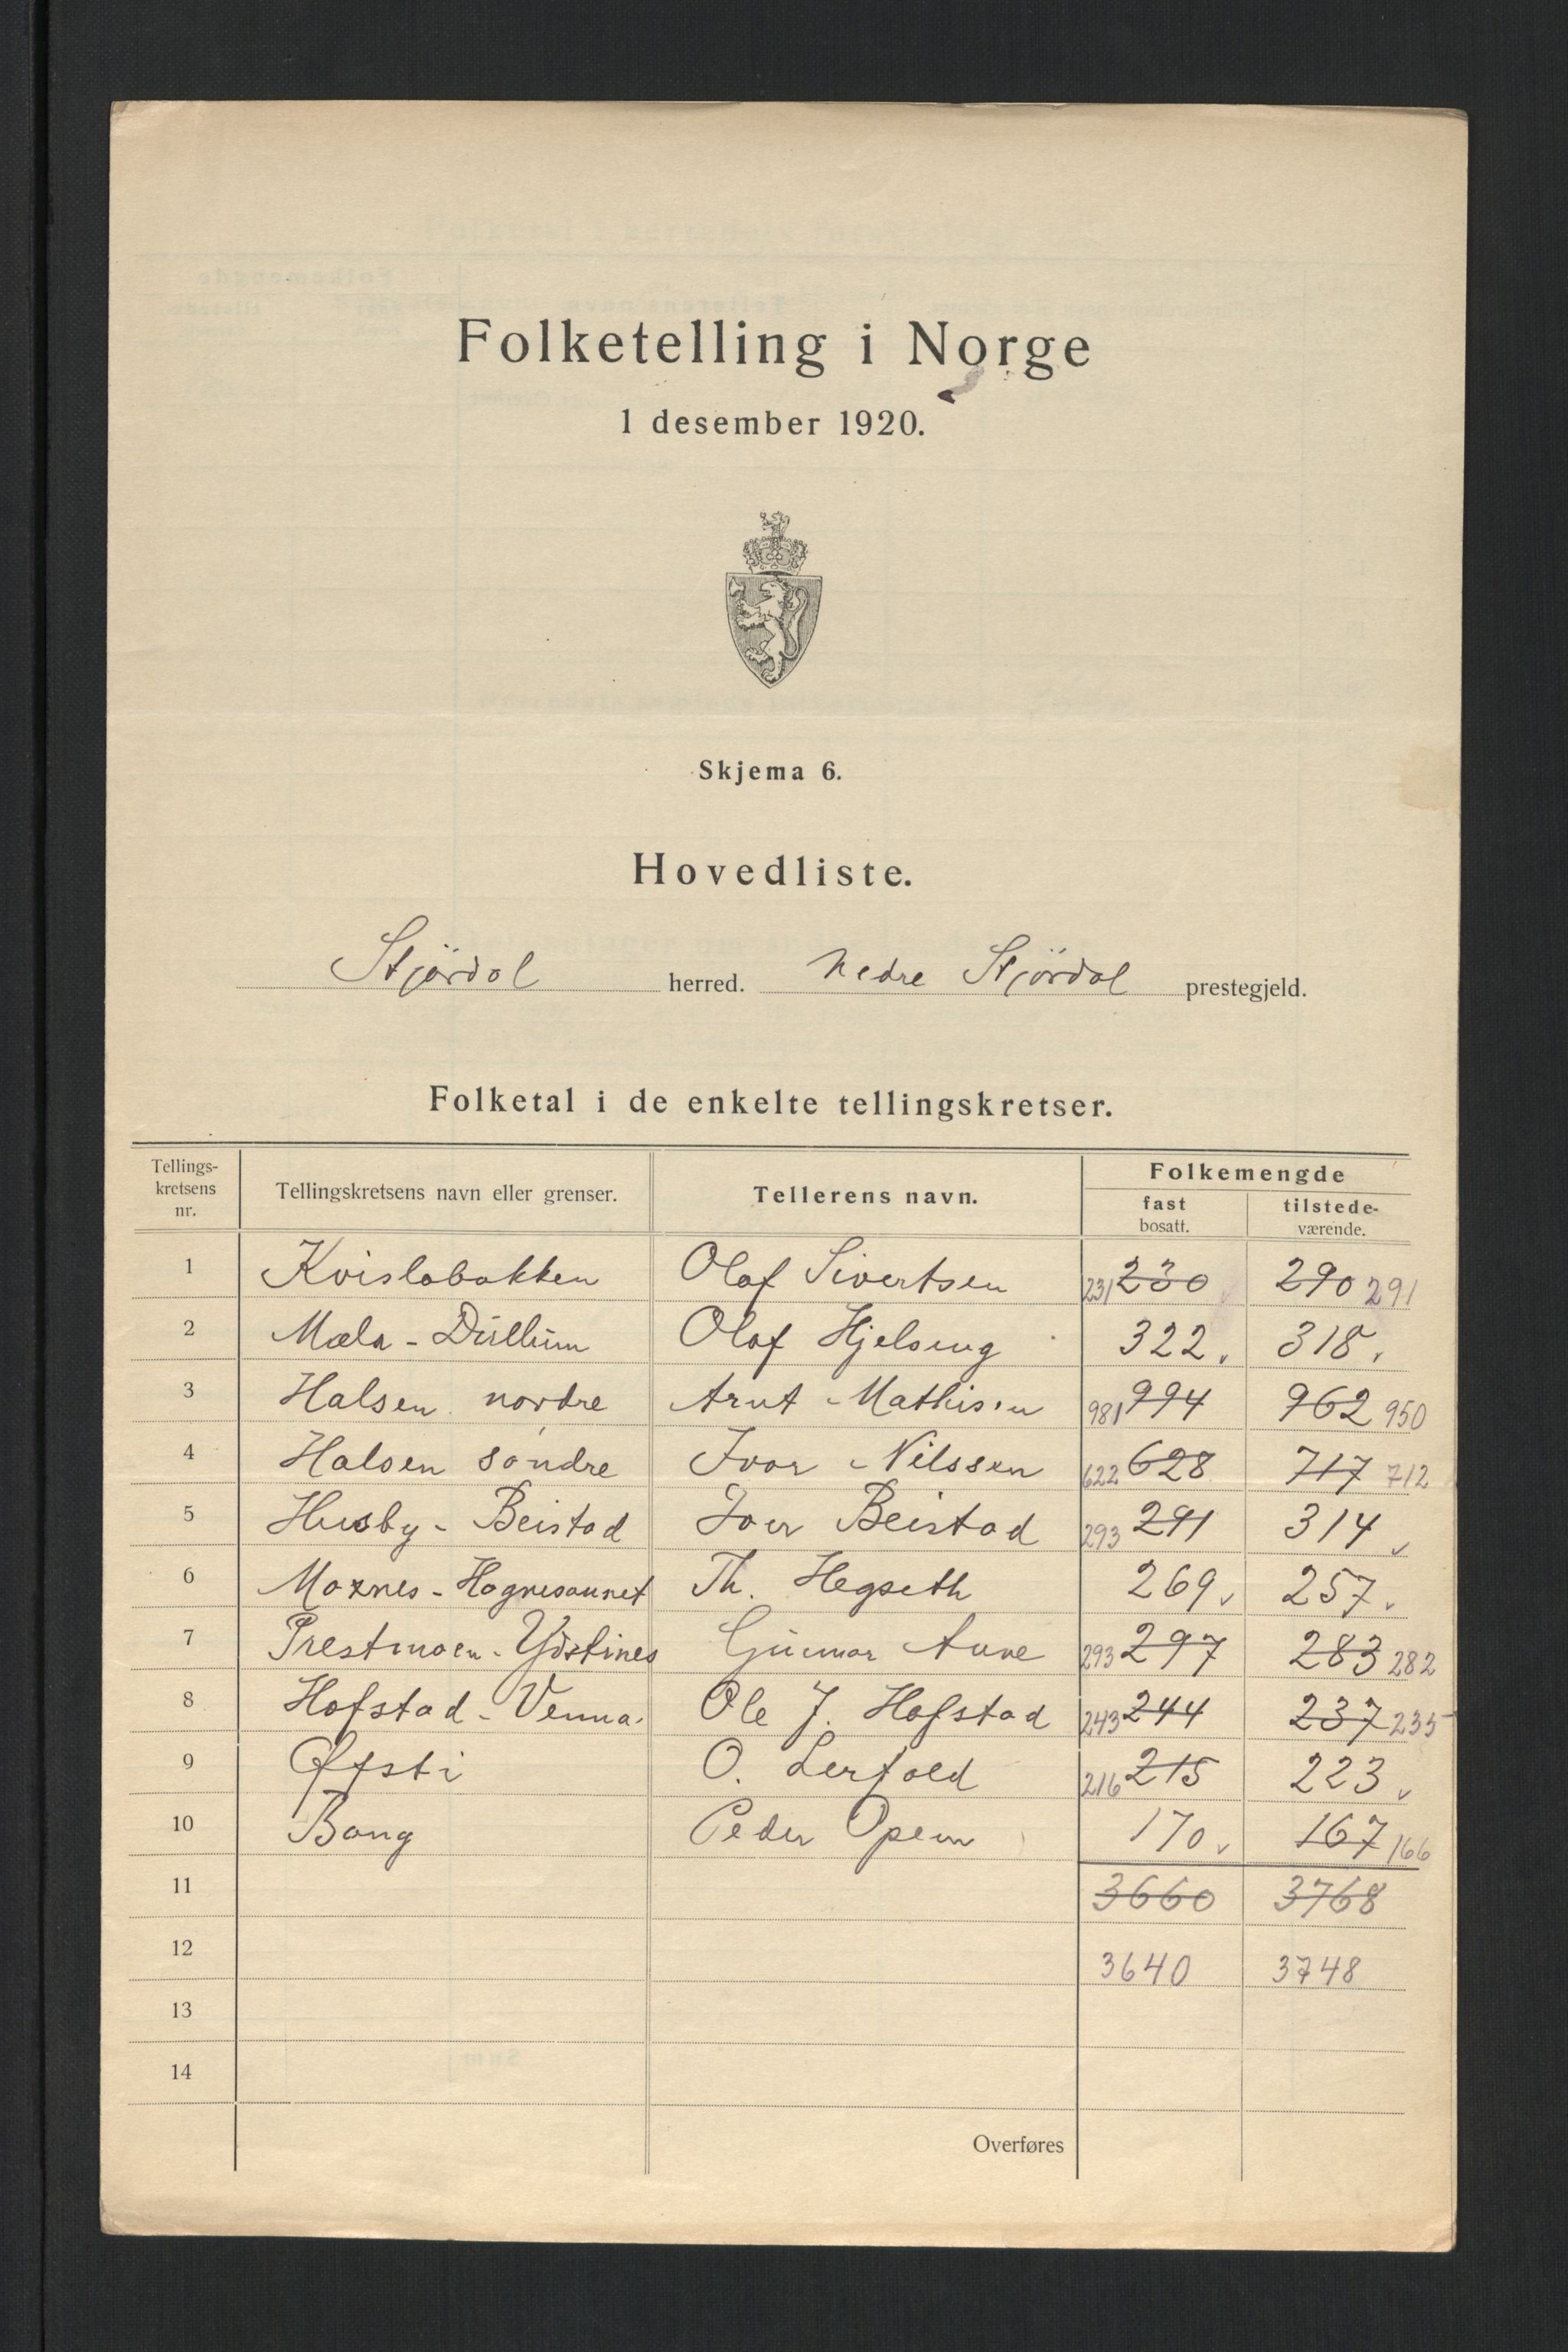 Folketelling i Norge
1 desember 1920.
Skjema 6.
Hovedliste.
Stjørdal herred. Nedre Stjørdal prestegjeld.
Folketal i de enkelte tellingskretser.
Tellings-
kretsens
nr.
Tellingskretsens navn eller grenser.
Tellerens navn.
Folkemengde
fast
bosatt.
tilstede-
værende.
1 Kvislabakken Olaf Sivertsen 231 230 290 291
2 Mæla - Dullum Olaf Hjelseng 322 318
3 Halsen nordre Arnt Mathisen 981 994 962 950
4 Halsen søndre Ivar Nilssen 622 628 717 712
5 Husby - Beistad Iver Beistad 293 291 314
6 Moxnes - Hognesaunet Th. Hegseth 269 257
7 Prestmoen - Ydstines Gunnar Aune 293 297 283 282
8 Hofstad - Venna Ole J. Hofstad 243 244 237 235
9 Øfsti O. Lerfald 216 215 223
10 Bang Peder Opem 170 167 166
11 3660 3768
12 3640 3748
13
14
Overføres